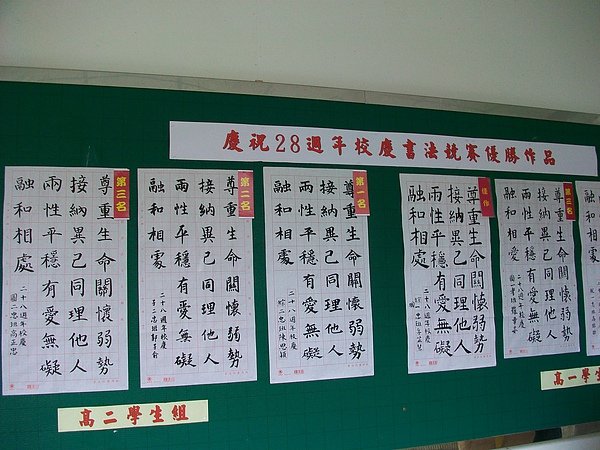 慶祝28週年校慶書法競賽優勝作品
第三名
尊重生命關懷弱勢
接納異己同理他人
兩性平穩有愛無礙
融和相處
二十八週年校慶
第二名
尊重生命關懷弱勢
接納異己同理他人
兩性平穩有愛無礙
融和相處
二十八週年校慶
第一名
尊重生命關懷弱勢
接納異己同理他人
兩性平穩有愛無礙
融和相處
二十八週年校慶
佳作
尊重生命關懷弱勢
接納異己同理他人
兩性平穩有愛無礙
融和相處
二十八週年校慶
第三名
尊重生命關懷弱勢
接納異己同理他人
兩性平穩有愛無礙
融和相愛
二十八週年校慶
高二學生組
高一學生